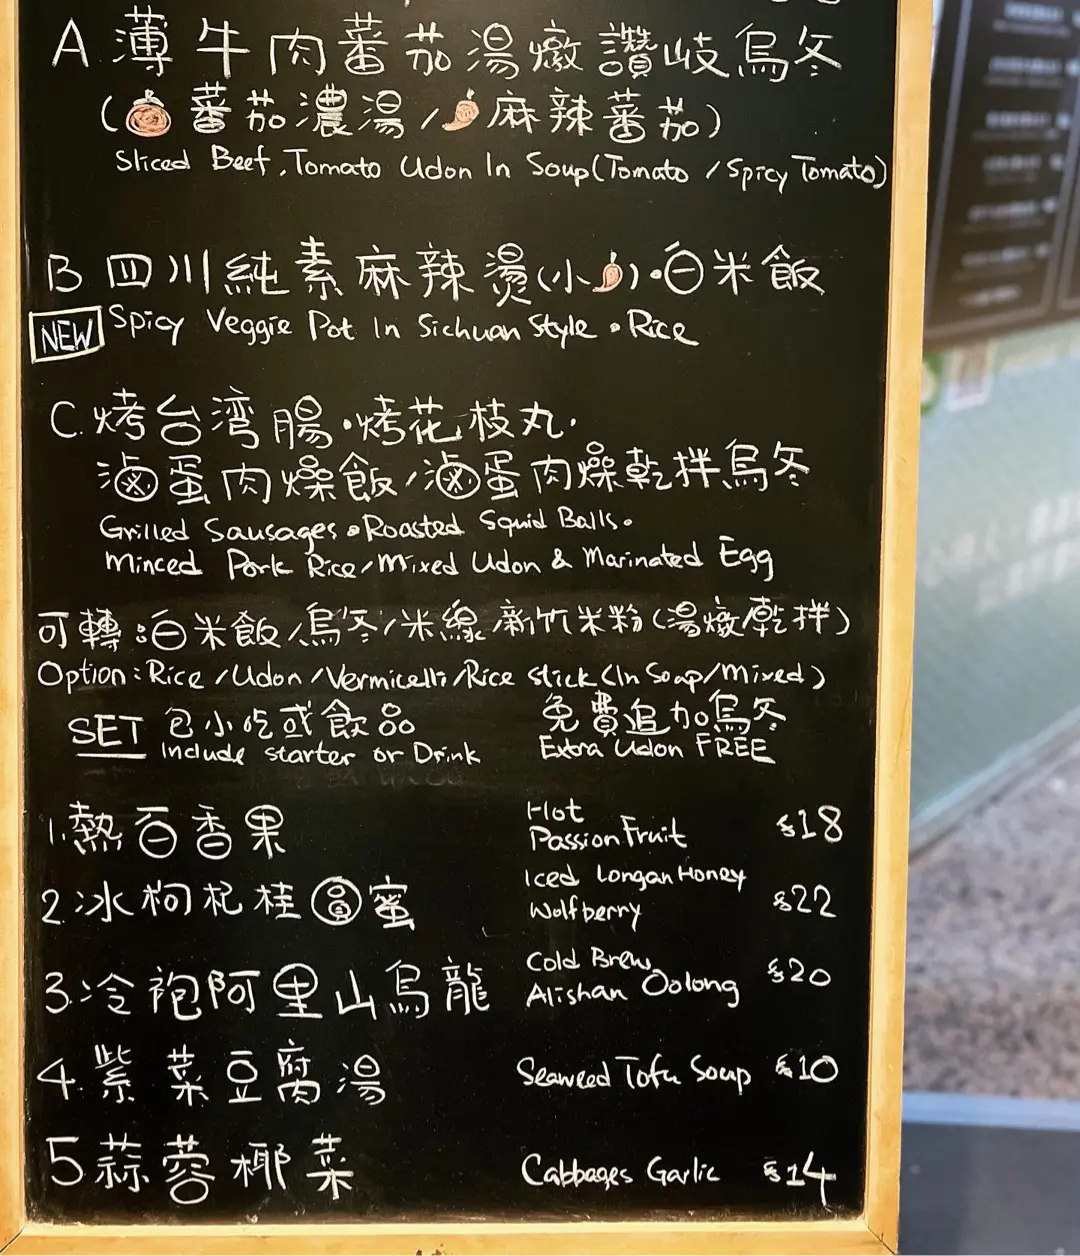 A.薄牛肉蕃茄湯燉讚岐烏冬
(蕃茄濃湯/麻辣蕃茄)
Sliced Beef, Tomato Udon In Soup (Tomato / Spicy Tomato)
B 四川純素麻辣燙(小)·白米飯
NEW Spicy Veggie Pot In Sichuan Style • Rice
C.烤台湾腸·烤花枝丸·
滷蛋肉燥飯/滷蛋肉燥乾拌烏冬
Grilled Sausages • Roasted Squid Balls •
Minced Pork Rice/Mixed Udon & Marinated Egg
可轉:白米飯/烏冬/米線/新竹米粉(湯燉/乾拌)
Option: Rice /Udon /Vermicelli /Rice stick (In Soup/Mixed)
SET 包小吃或飲品 免費追加烏冬
Include starter or Drink Extra Udon FREE
1.熱百香果 Hot Passion Fruit $18
2.冰枸杞桂圓蜜 Iced Longan Honey Wolfberry $22
3.冷袍阿里山烏龍 Cold Brew Alishan Oolong $20
4.紫菜豆腐湯 Seaweed Tofu Soup $10
5.蒜蓉椰菜 Cabbages Garlic $14